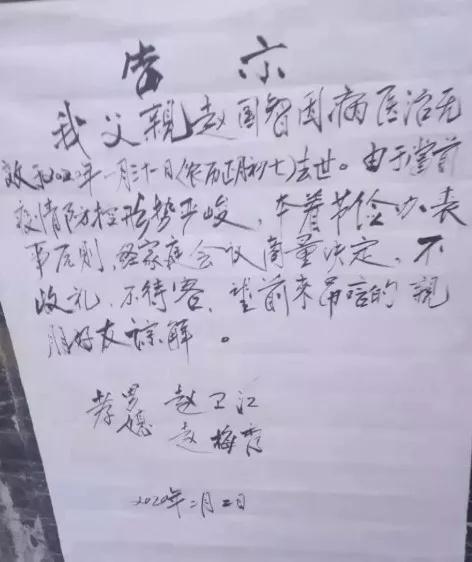 告示
我父亲赵国智因病医治无
效于2020年一月三十一日(农历正月初七)去世。由于当前
疫情防控形势严峻,本着节俭办丧
事原则,经家庭会议商量决定,不
收礼、不待客,望前来吊唁的親
朋好友谅解。
孝男 赵卫江
媳 赵梅秀
2020年二月二日